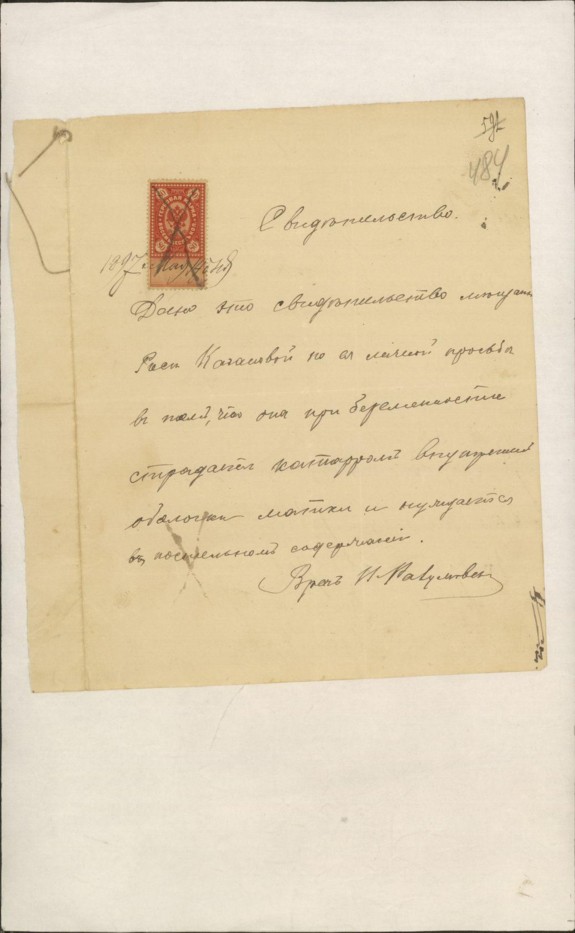 592
484
Свидѣтельство.
1897 г. Мая
Дано это свидѣтельство мѣщанкѣ
по ея личной просьбѣ
въ томъ, что она при беременности
страдаетъ катарромъ внутренней
оболочки матки и нуждается
въ содержаніи.
Врачъ